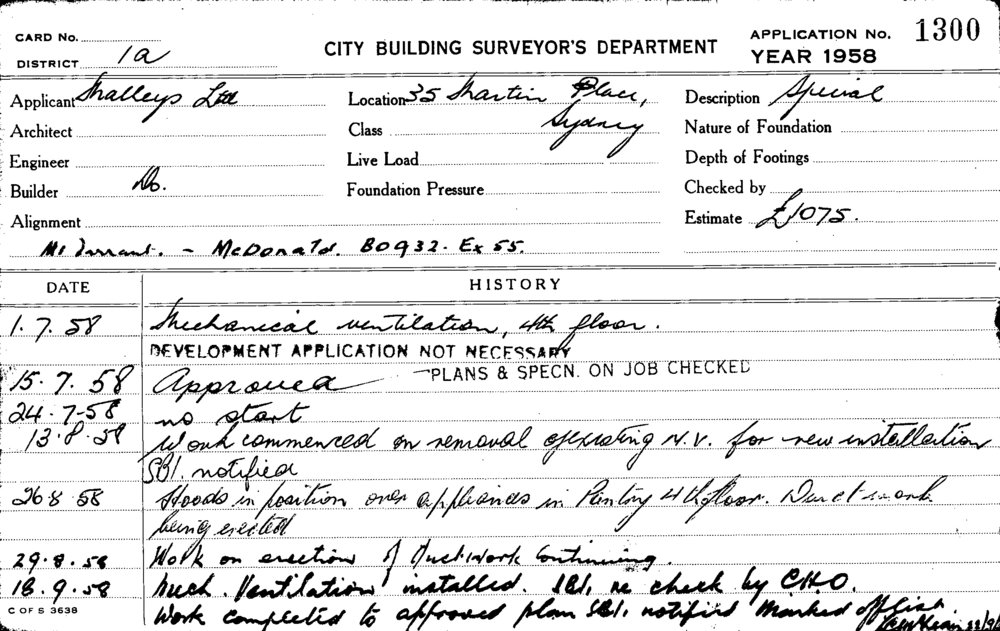 CARD No.
DISTRICT 1a
CITY BUILDING SURVEYOR'S DEPARTMENT
APPLICATION No. 1300
YEAR 1958
Applicant Malleys Ltd
Location 35 Martin Place,
Sydney
Description Special
Architect
Class
Nature of Foundation
Engineer
Live Load
Depth of Footings
Builder Do.
Foundation Pressure
Checked by
Alignment
Estimate £1075.
Mr - McDonald. B0932. Ex 55.
DATE HISTORY
1.7.58 Mechanical ventilation, 4th floor.
DEVELOPMENT APPLICATION NOT NECESSARY
15.7.58 Approved PLANS & SPECN. ON JOB CHECKED
24.7-58 no start
13.8.58 Work commenced on removal existing M.V. for new installation
SBI. notified
26 8 58 Hoods in position over appliances in Pantry 4th floor. Duct work
being erected
29.8.58 Work on erection of Ductwork Continuing.
18.9.58 Mech. Ventilation installed. SBI. re check by C.H.O.
C OF S 3638
Work completed to approved plan SBI. notified Marked off list.